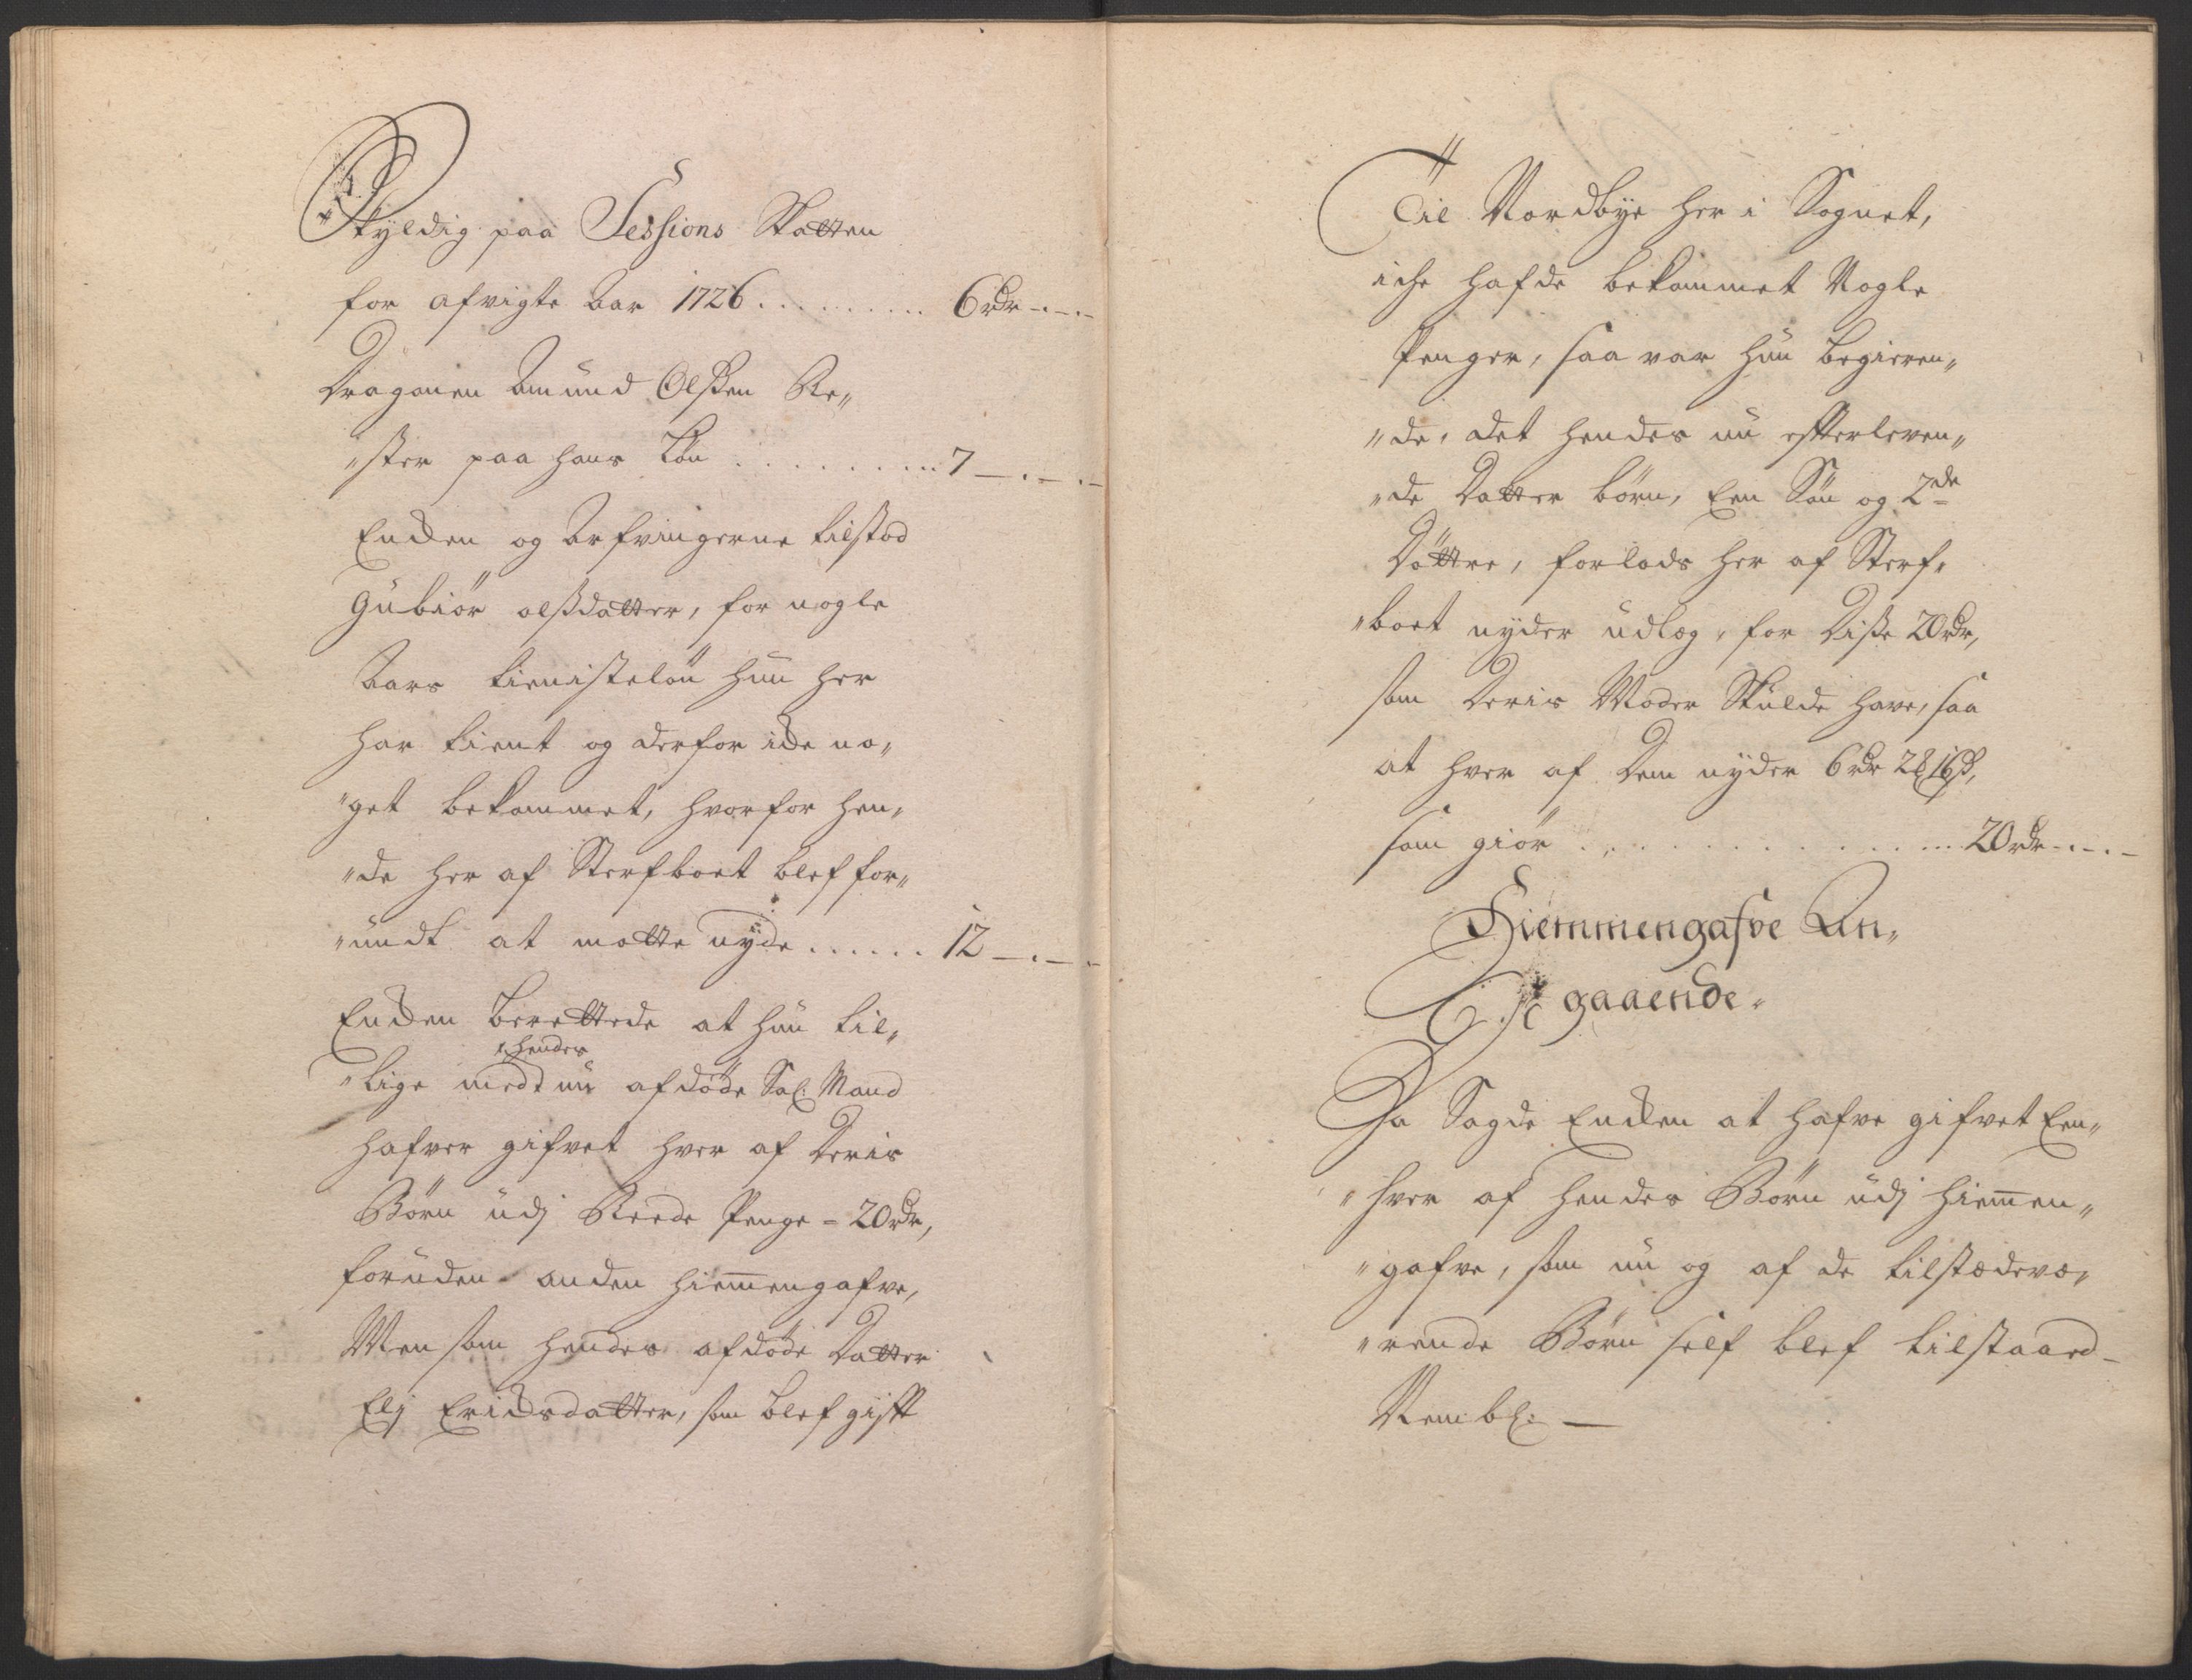 Skyldig paa Sessions Skatten
for afvigte Aar 1726 . . . . . . . . . 6 rdr -.-.-
Dragonen Amund Olßen Re„
„ster paa hans Løn . . . . . . . . . . 7 -.-.-
Enken og Arfvingerne tilstod
Gubiør olßdatter, for nogle
Aars tienisteløn hun her
har tient og derfor icke no„
„get bekommet, hvorfor hen„
„de her af Sterfboet blef for„
„undt at motte nyde . . . . . . 12 -.-.-
Enken berettede at hun til„
„lige medt hendes nu afdøde Sal: Mand
hafver gifvet hver af Deris
Børn udj Reede Penge - 20 rdr,
foruden anden hiem̄engafve,
Men som hendes afdøde Datter
Elj Ericksdatter, som blef gift
Til Nordbye her i Sognet,
iche hafde bekommet Nogle
Penger, saa var hun begieren„
„de, at hendes nu efterleven„
„de Datter børn, Een Søn og 2de
Døttre, forlods her af Sterf„
„boet nyder udlæg, for Disse 20 rdr,
som Deris Moder Skulde have, saa
at hver af Dem nyder 6 rdr 2 ℔ 16 ß,
som giør . . . . . . . . . . . . . . . 20 rdr -.-.-
Hiemmengafve An„
gaaende„
Da Sagde Enken at hafve gifvet Een„
„hver af hendes Børn udj hiem̄en„
„gafve, som nu og af de tilstædevæ„
„rende Børn self blef tilstaaed -
Nembl: —